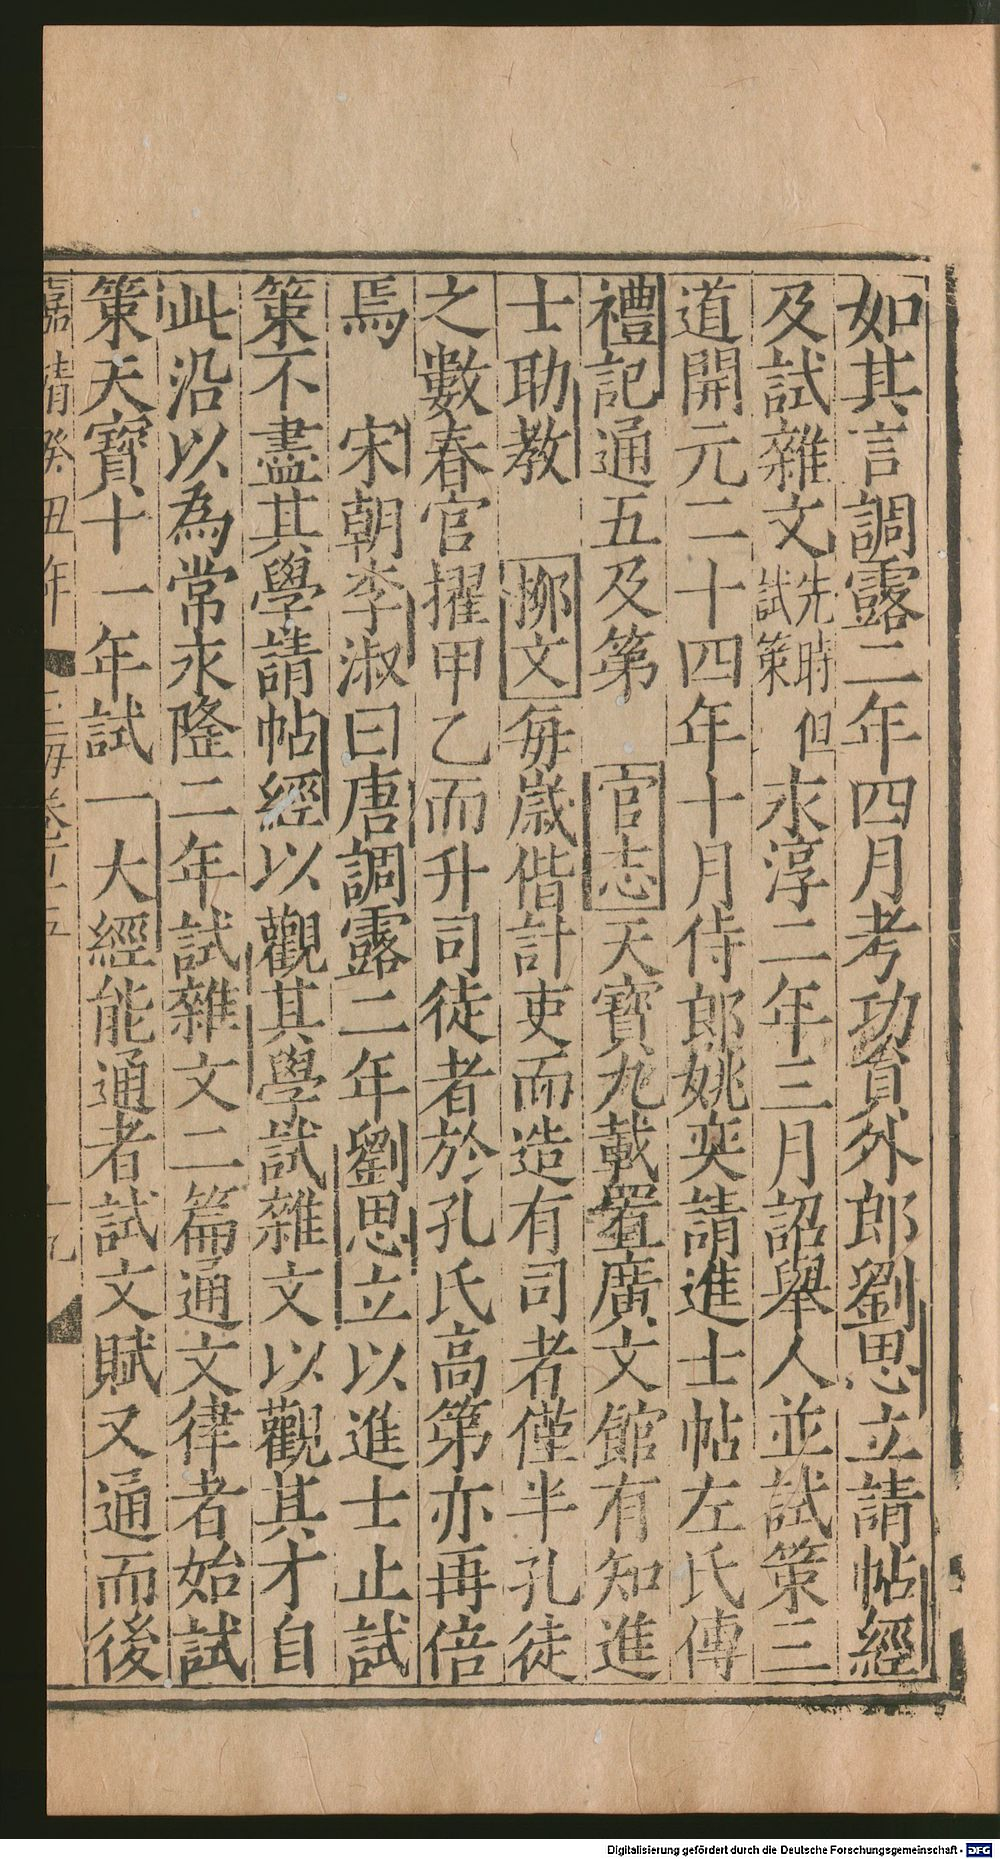 如其言調露二年四月考功員外郎劉思立請帖經
及試雜文先時但試策永淳二年三月詔舉人並試策三
道開元二十四年十月侍郎姚奕請進士帖左氏傳
禮記通五及第　官志天寶九載置廣文館有知進
士助教　柳文每歲偕計吏而造有司者僅半孔徒
之數春官擢甲乙而升司徒者於孔氏高第亦再倍
焉　宋朝李淑曰唐調露二年劉思立以進士止試
策不盡其學請帖經以觀其學試雜文以觀其才自
此沿以為常永隆二年試雜文二篇通文律者始試
策天寶十一年試一大經能通者試文賦又通而後
嘉靖癸丑年
Digitalisierung gefördert durch die Deutsche Forschungsgemeinschaft - DFG